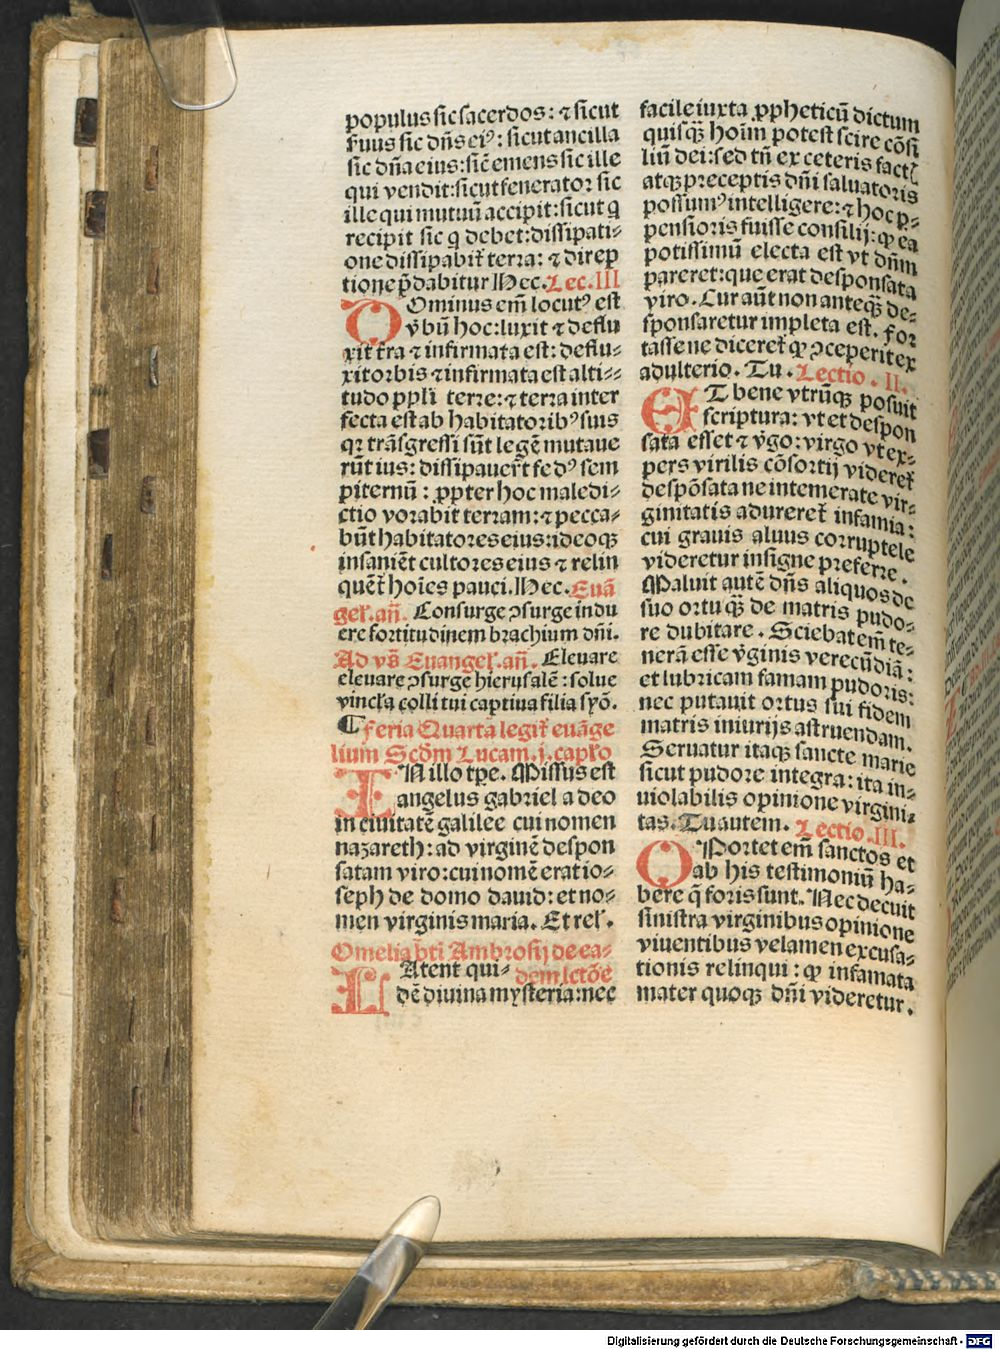 populus sic sacerdos: ⁊ sicut
ẜuus sic dn̄s eiꝰ: sicut ancilla
sic dn̄a eius: sic̄ emens sic ille
qui vendit: sicut fenerator sic
ille qui mutuū accipit: sicut q̇
recipit sic q̇ debet: dissipati⸗
one dissipabit᷑ terra: ⁊ direp
tione p̄dabitur Hec. Lec. III
DOminus em̄ locutꝰ est
v̄bū hoc: luxit ⁊ deflu
xit t̄ra ⁊ infirmata est: deflu⸗
xit orbis ⁊ infirmata est alti⸗
tudo ppl̄i terre: ⁊ terra inter
fecta est ab habitatoribꝰ suis
qꝛ trāsgressi sūt legē mutaue
rūt ius: dissipauer̄t fedꝰ sem
piternū: ꝓpter hoc maledi⸗
ctio vorabit terram: ⁊ pecca⸗
būt habitatores eius: ideoqꝫ
insaniēt cultores eius ⁊ relin
quēt᷑ hoīes pauci. Hec. Euā
gel᷑. an̄. Consurge ꝯsurge indu
ere fortitudinem brachium dn̄i.
Ad vs̄ Euangel᷑. an̄. Eleuare
eleuare ꝯsurge hierusalē: solue
vincl᷑a colli tui captiua filia syō.
¶ feria Quarta legit᷑ euāge
lium Scd̄m Lucam. j. capl᷑o
IN illo tp̄e. Missus est
angelus gabriel a deo
in ciuitatē galilee cui nomen
nazareth: ad virginē despon
satam viro: cui nomē erat io⸗
seph de domo dauid: et no⸗
men virginis maria. Et rel᷑.
Omelia bt̄i Ambrosij de ea⸗
dem lctōe
LAtent qui⸗
dē diuina mysteria: nec
facile iuxta ꝓpheticū dictum
quisqꝫ hoīm potest scire cōsi
liū dei: sed tn̄ ex ceteris factꝭ
atqꝫ preceptis dn̄i saluatoris
possumꝰ intelligere: ⁊ hoc ꝓ⸗
pensioris fuisse consilij: ꝙ ea
potissimū electa est vt dn̄m
pareret: que erat desponsata
viro. Cur aūt non anteqꝫ de⸗
sponsaretur impleta est. for
tasse ne diceret᷑ ꝙ ꝯceperit ex
adulterio. Tu. Lectio. II.
ET bene vtrūqꝫ posuit
scriptura: vt et despon
sata esset ⁊ v̄go: virgo vt ex⸗
pers virilis cōsortij videret᷑
despōsata ne intemerate vir⸗
ginitatis adureret᷑ infamia:
cui grauis aluus corruptele
videretur insigne preferre.
Maluit autē dn̄s aliquos de
suo ortu qꝫ de matris pudo⸗
re dubitare. Sciebat em̄ te⸗
nerā esse v̄ginis verecūdiā:
et lubricam famam pudoris:
nec putauit ortus sui fidem
matris iniurijs astruendam.
Seruatur itaqꝫ sancte marie
sicut pudore integra: ita in⸗
uiolabilis opinione virgini⸗
tas. Tu autem. Lectio. III.
OPortet em̄ sanctos et
ab his testimoniū ha⸗
bere q̄ foris sunt. Nec decuit
sinistra virginibus opinione
viuentibus velamen excusa⸗
tionis relinqui: ꝙ infamata
mater quoqꝫ dn̄i videretur.
Digitalisierung gefördert durch die Deutsche Forschungsgemeinschaft - DFG